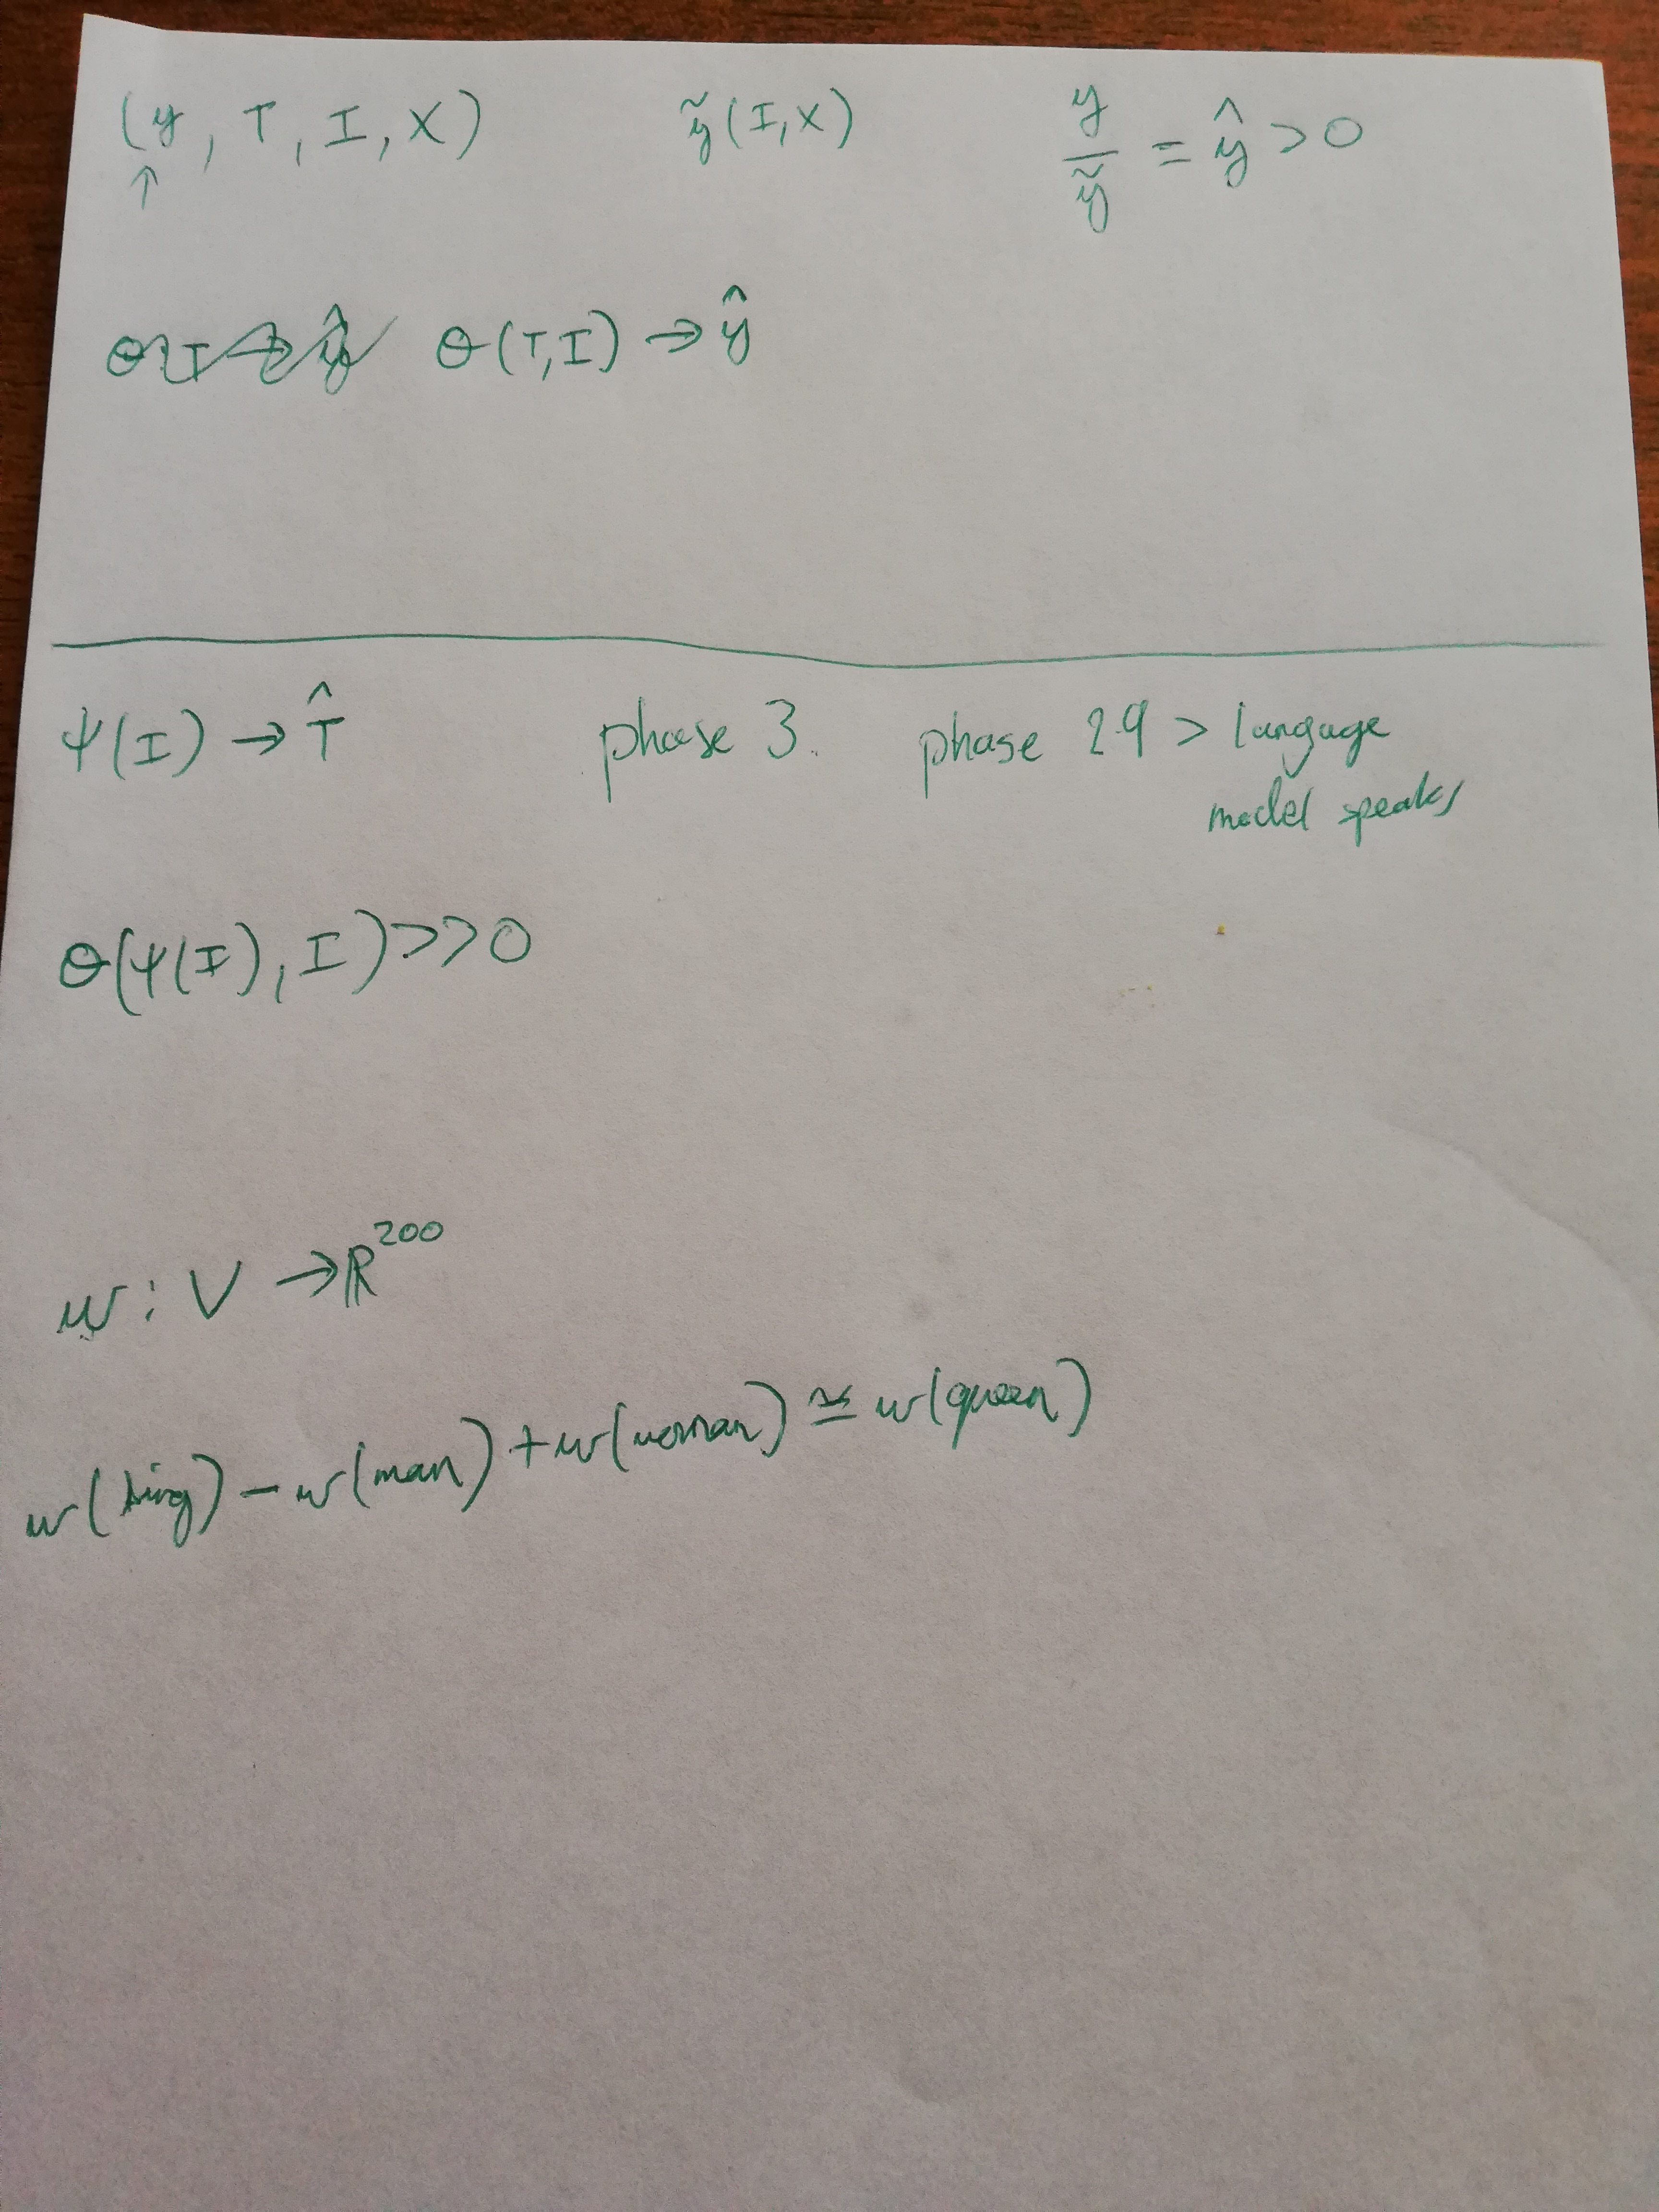 (y, T, I, X) ỹ(I, X) y/ỹ = ŷ > 0
↑
θ(T, I) → ŷ
ψ(I) → T̂ phase 3. phase 2.9 > langage
model speaks
θ(ψ(I), I) >> 0
w : V → ℝ²⁰⁰
w(king) − w(man) + w(woman) ≅ w(queen)